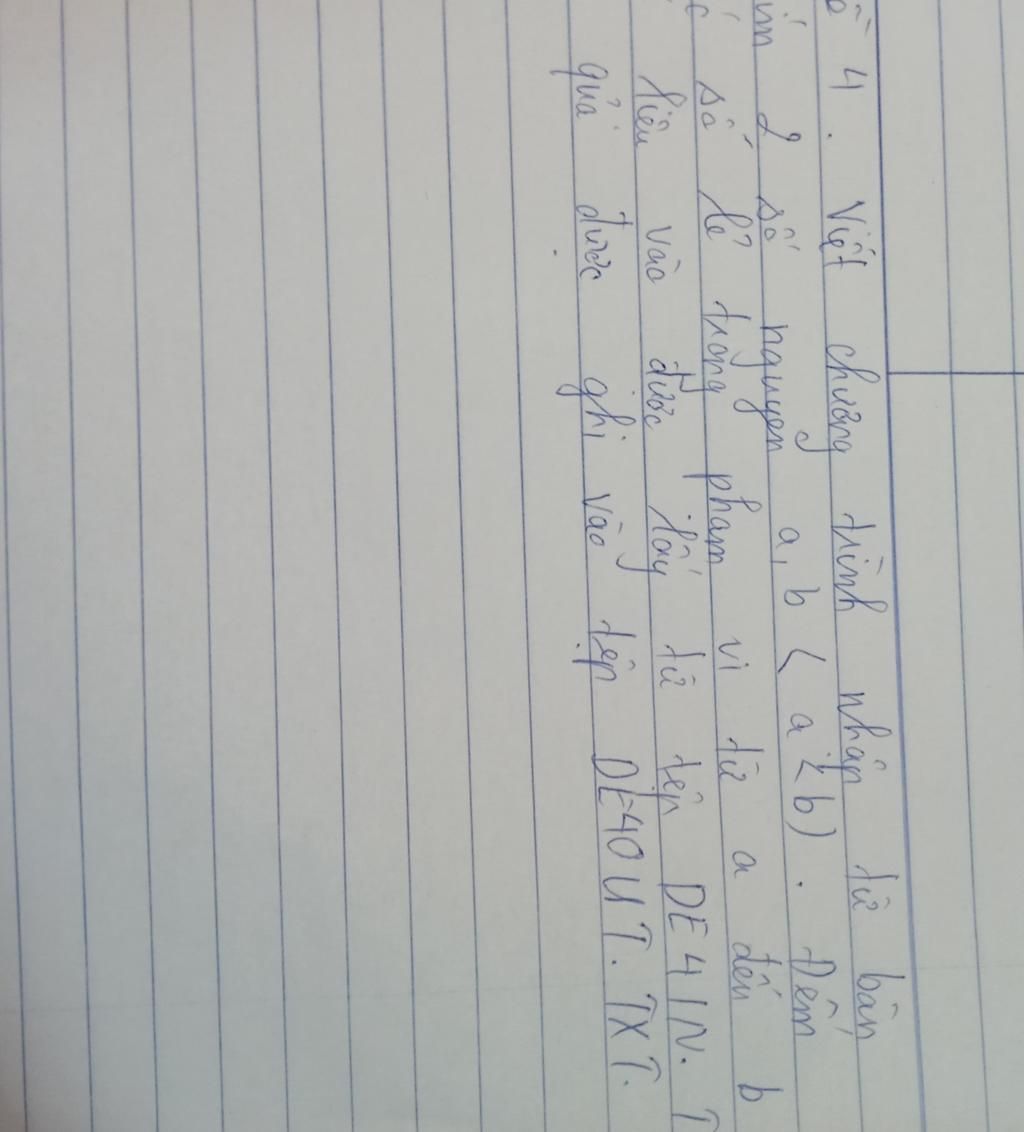 4. Viết chương trình nhập từ bàn
2 số nguyen a, b ( a < b). Đếm
số lẻ trong phạm vi từ a đến b
liệu vào được lấy từ tệp DE4IN. T
quả được ghi vào tệp DE4OUT. TXT.